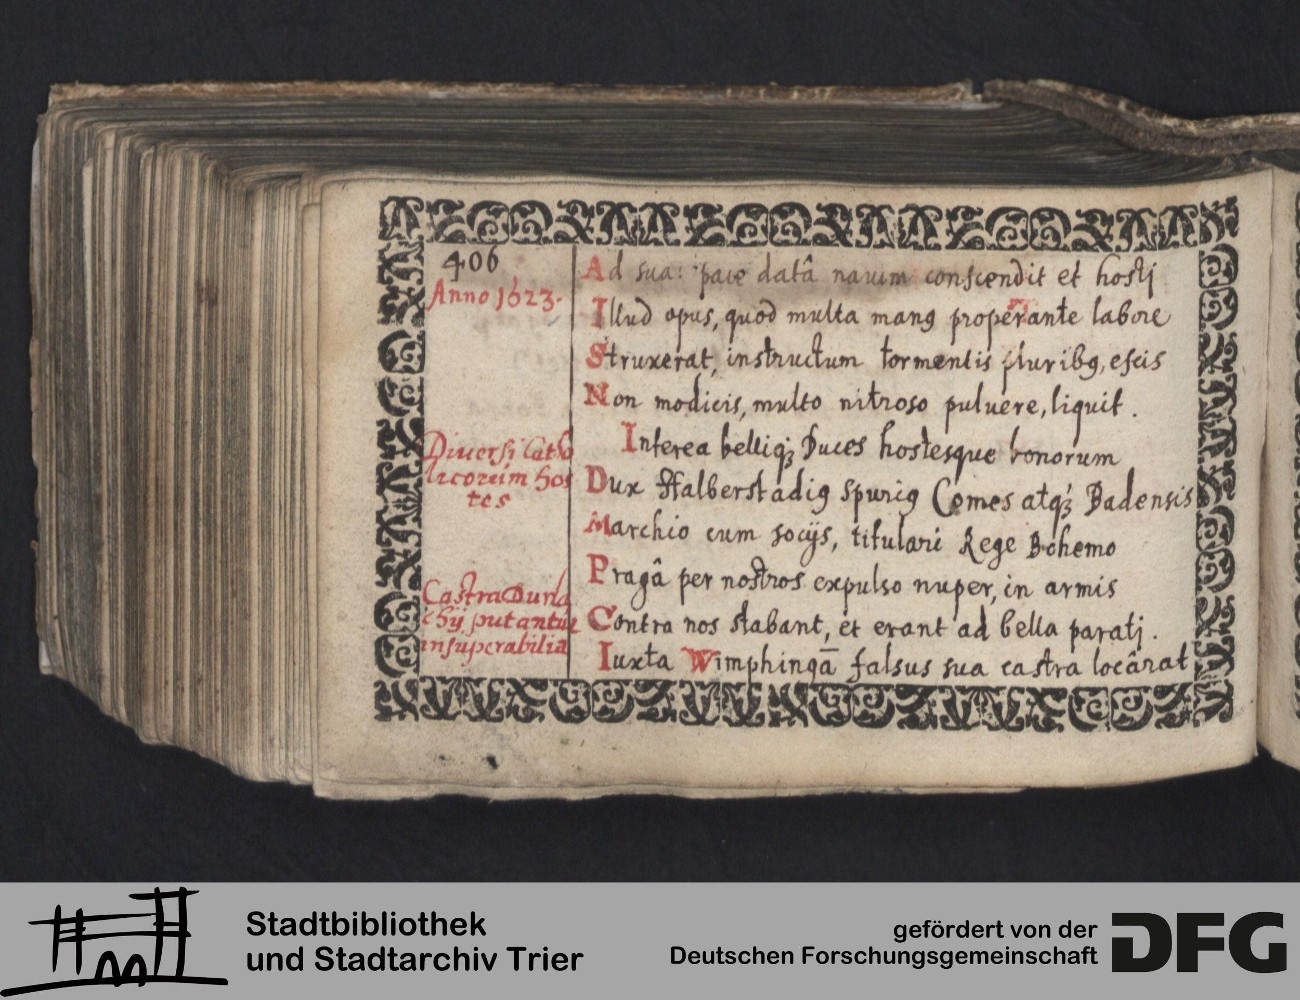 406
Anno 1623.
Diuersi Catho
licorum hos
tes
Castra Durla
chij putantur
insuperabilia
Ad sua: pace datâ nauim conscendit et hostj
Illud opus, quod multa manꝰ properante labore
Struxerat, instructum tormentis pluribꝰ, escis
Non modicis, multo nitroso puluere, liquit.
Interea belliqꝫ Duces hostesque bonorum
Dux Halberstadiꝰ spuriꝰ Comes atqꝫ Badensis
Marchio cum socijs, titulari Rege Bohemo
Pragâ per nostros expulso nuper, in armis
Contra nos stabant, et erant ad bella paratj.
Iuxta Wimphingā falsus sua castra locârat
Stadtbibliothek
und Stadtarchiv Trier
gefördert von der
Deutschen Forschungsgemeinschaft
DFG